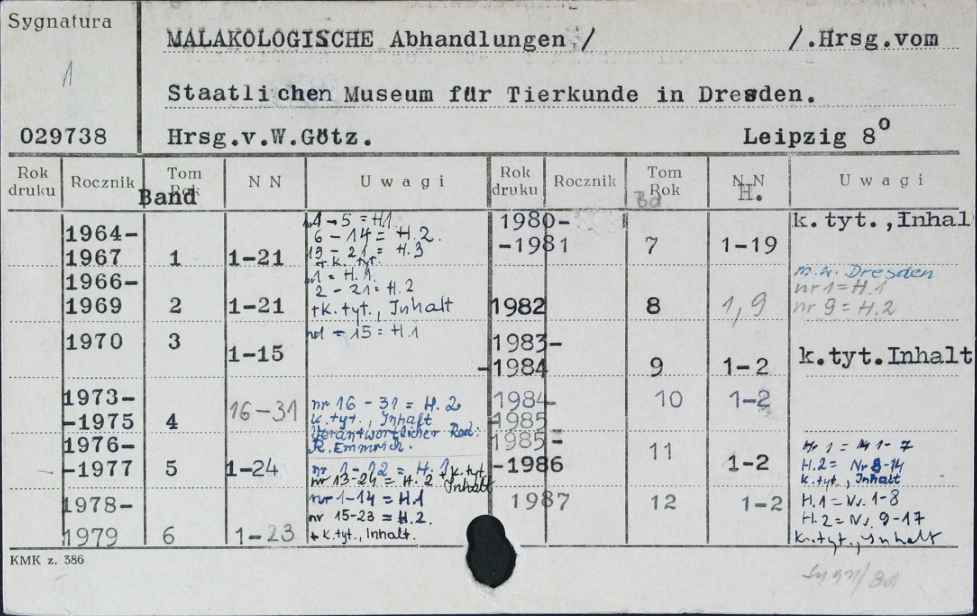 Sygnatura
1
029738
MALAKOLOGISCHE Abhandlungen / /.Hrsg.vom
Staatlichen Museum für Tierkunde in Dresden.
Hrsg.v.W.Götz. Leipzig 8°
Rok druku Rocznik Tom Rok Band N N Uwagi
1964-1967 1 1-21 1-5 = H.1
6-14 = H.2.
19-21 = H.3
+k. tyt.
1966-1969 2 1-21 1 = H.1.
2-21 = H.2
+k.tyt., Inhalt
1970 3 1-15 nr 1 - 15 = H.1
1973--1975 4 16-31 nr 16 - 31 = H.2
k.tyt., Inhalt
Verantwortlicher Red:
R. Emmrich.
1976--1977 5 1-24 nr 1-12 = H.1
nr 13-24 = H.2 +k.tyt Inhalt
1978-1979 6 1-23 nr 1-14 = H.1
nr 15-23 = H.2.
+k.tyt., Inhalt.
Rok druku Rocznik Tom Rok Bd N.N H. Uwagi
1980--1981 7 1-19 k.tyt.,Inhal
1982 8 1,9 m.w. Dresden
nr 1 = H.1
nr 9 = H.2
1983--1984 9 1-2 k.tyt.Inhalt
1984-1985 10 1-2
1985--1986 11 1-2 H.1 = Nr 1-7
H.2 = Nr 8-14
k.tyt., Inhalt
1987 12 1-2 H.1 = Nr. 1-8
H.2 = Nr. 9-17
k.tyt., Inhalt
KMK z. 386